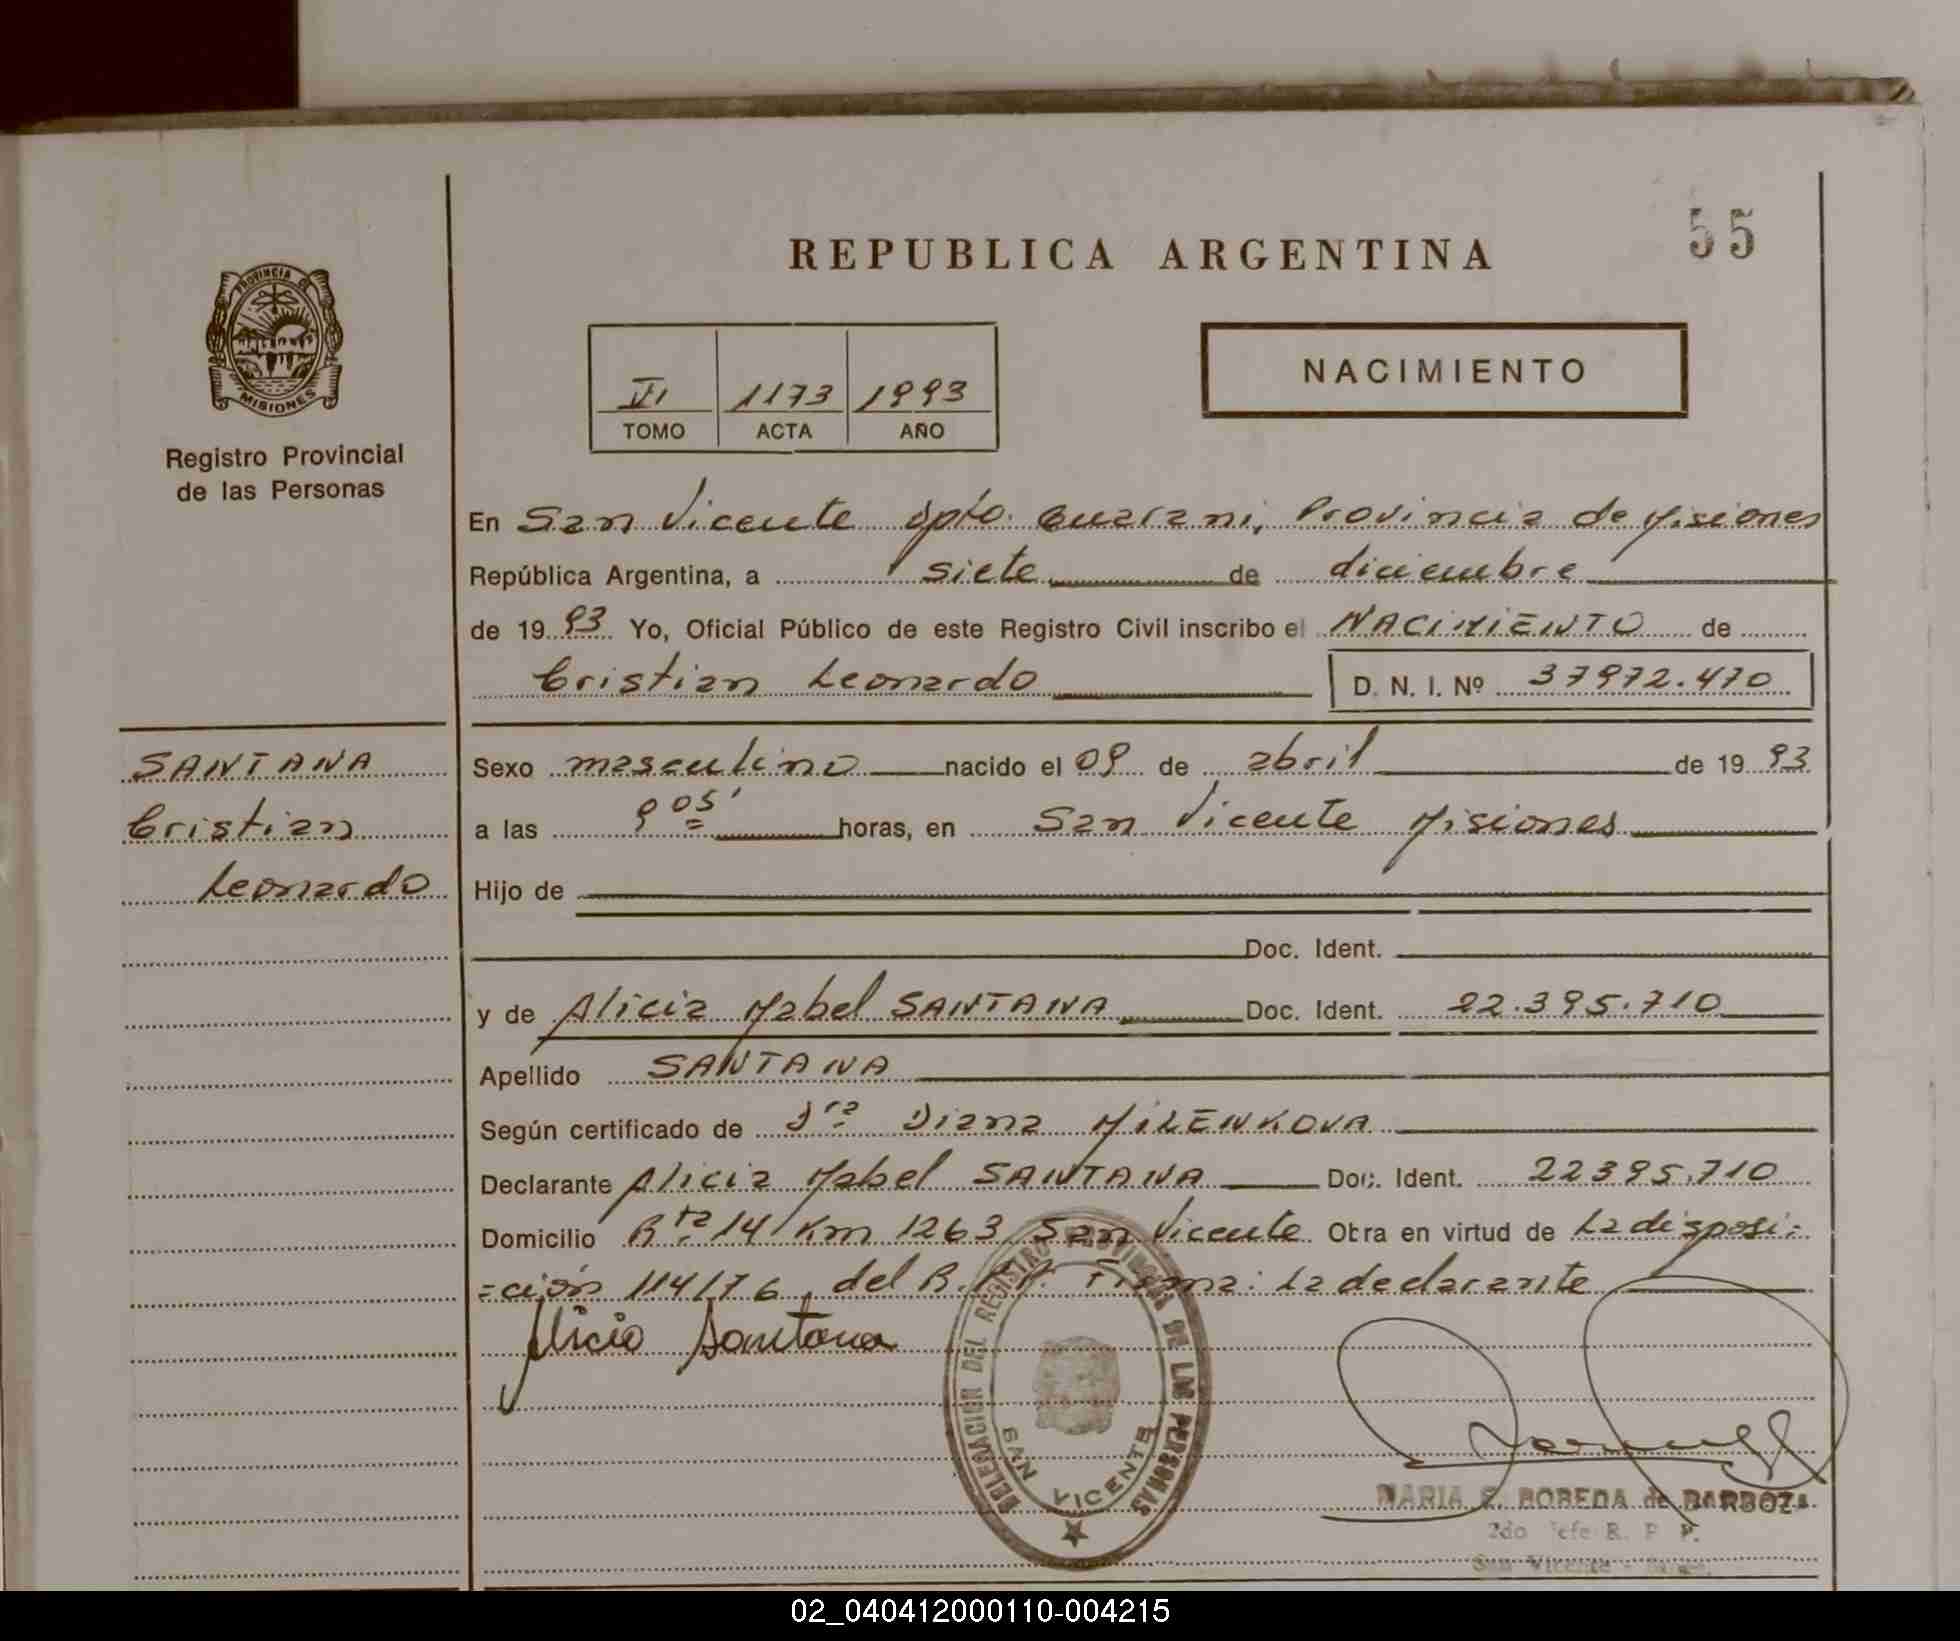 55
REPUBLICA ARGENTINA
PROVINCIA DE
MISIONES
Registro Provincial
de las Personas
VI 1173 1993
TOMO ACTA AÑO
NACIMIENTO
En San Vicente Dpto. Guarani, Provincia de Misiones
República Argentina, a siete de diciembre
de 1993 Yo, Oficial Público de este Registro Civil inscribo el NACIMIENTO de
Cristian Leonardo D. N. I. Nº 37972.470
SANTANA
Cristian
Leonardo
Sexo masculino nacido el 09 de abril de 1993
a las 9 05' horas, en San Vicente Misiones
Hijo de
Doc. Ident.
y de Alicia Mabel SANTANA Doc. Ident. 22.395.710
Apellido SANTANA
Según certificado de Dra Diana MILENKOVA
Declarante Alicia Mabel SANTANA Doc. Ident. 22395.710
Domicilio Rta. 14 Km 1263 San Vicente Obra en virtud de La disposi=
=ción 114/76 del R.P.P. Firma: La declarante
Alicia Santana
DELEGACION DEL REGISTRO PROVINCIAL DE LAS PERSONAS
SAN VICENTE
MARIA BOBEDA de BARBOZA
2do Jefe R. P. P.
San Vicente
02_040412000110-004215